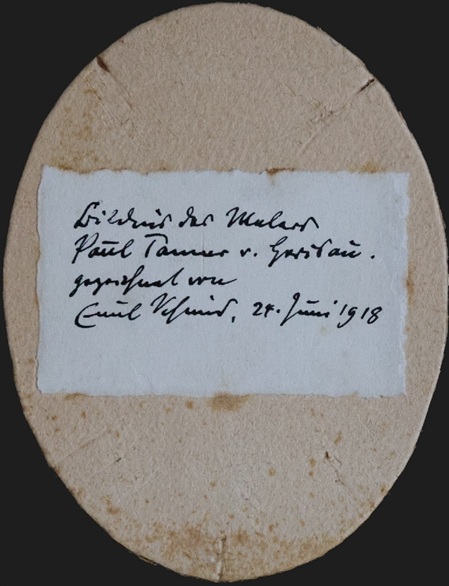 Bildnis des Malers
Paul Tanner v. Herisau.
gezeichnet von
Emil Schmid, 24. Juni 1918